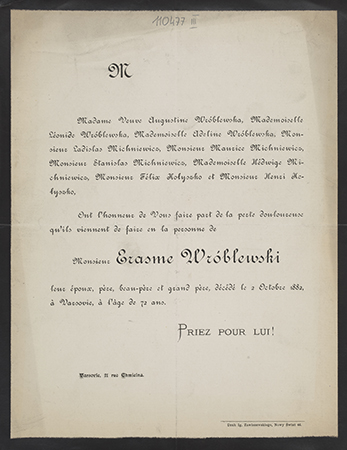 110477 III
M
Madame Veuve Augustine Wróblewska, Mademoiselle
Léonide Wróblewska, Mademoiselle Adeline Wróblewska, Mon-
sieur Ladislas Michniewicz, Monsieur Maurice Michniewicz,
Monsieur Stanislas Michniewicz, Mademoiselle Hédwige Mi-
chniewicz, Monsieur Félix Holyszko et Monsieur Henri Ho-
lyszko,
Ont l'honneur de Vous faire part de la perte douloureuse
qu'ils viennent de faire en la personne de
Monsieur Erasme Wróblewski
leur époux, père, beau-père et grand père, décédé le 2 Octobre 1882,
à Varsovie, à l'âge de 72 ans.
PRIEZ POUR LUI!
Varsovie, 21 rue Chmielna.
Druk Ig. Nowy Świat